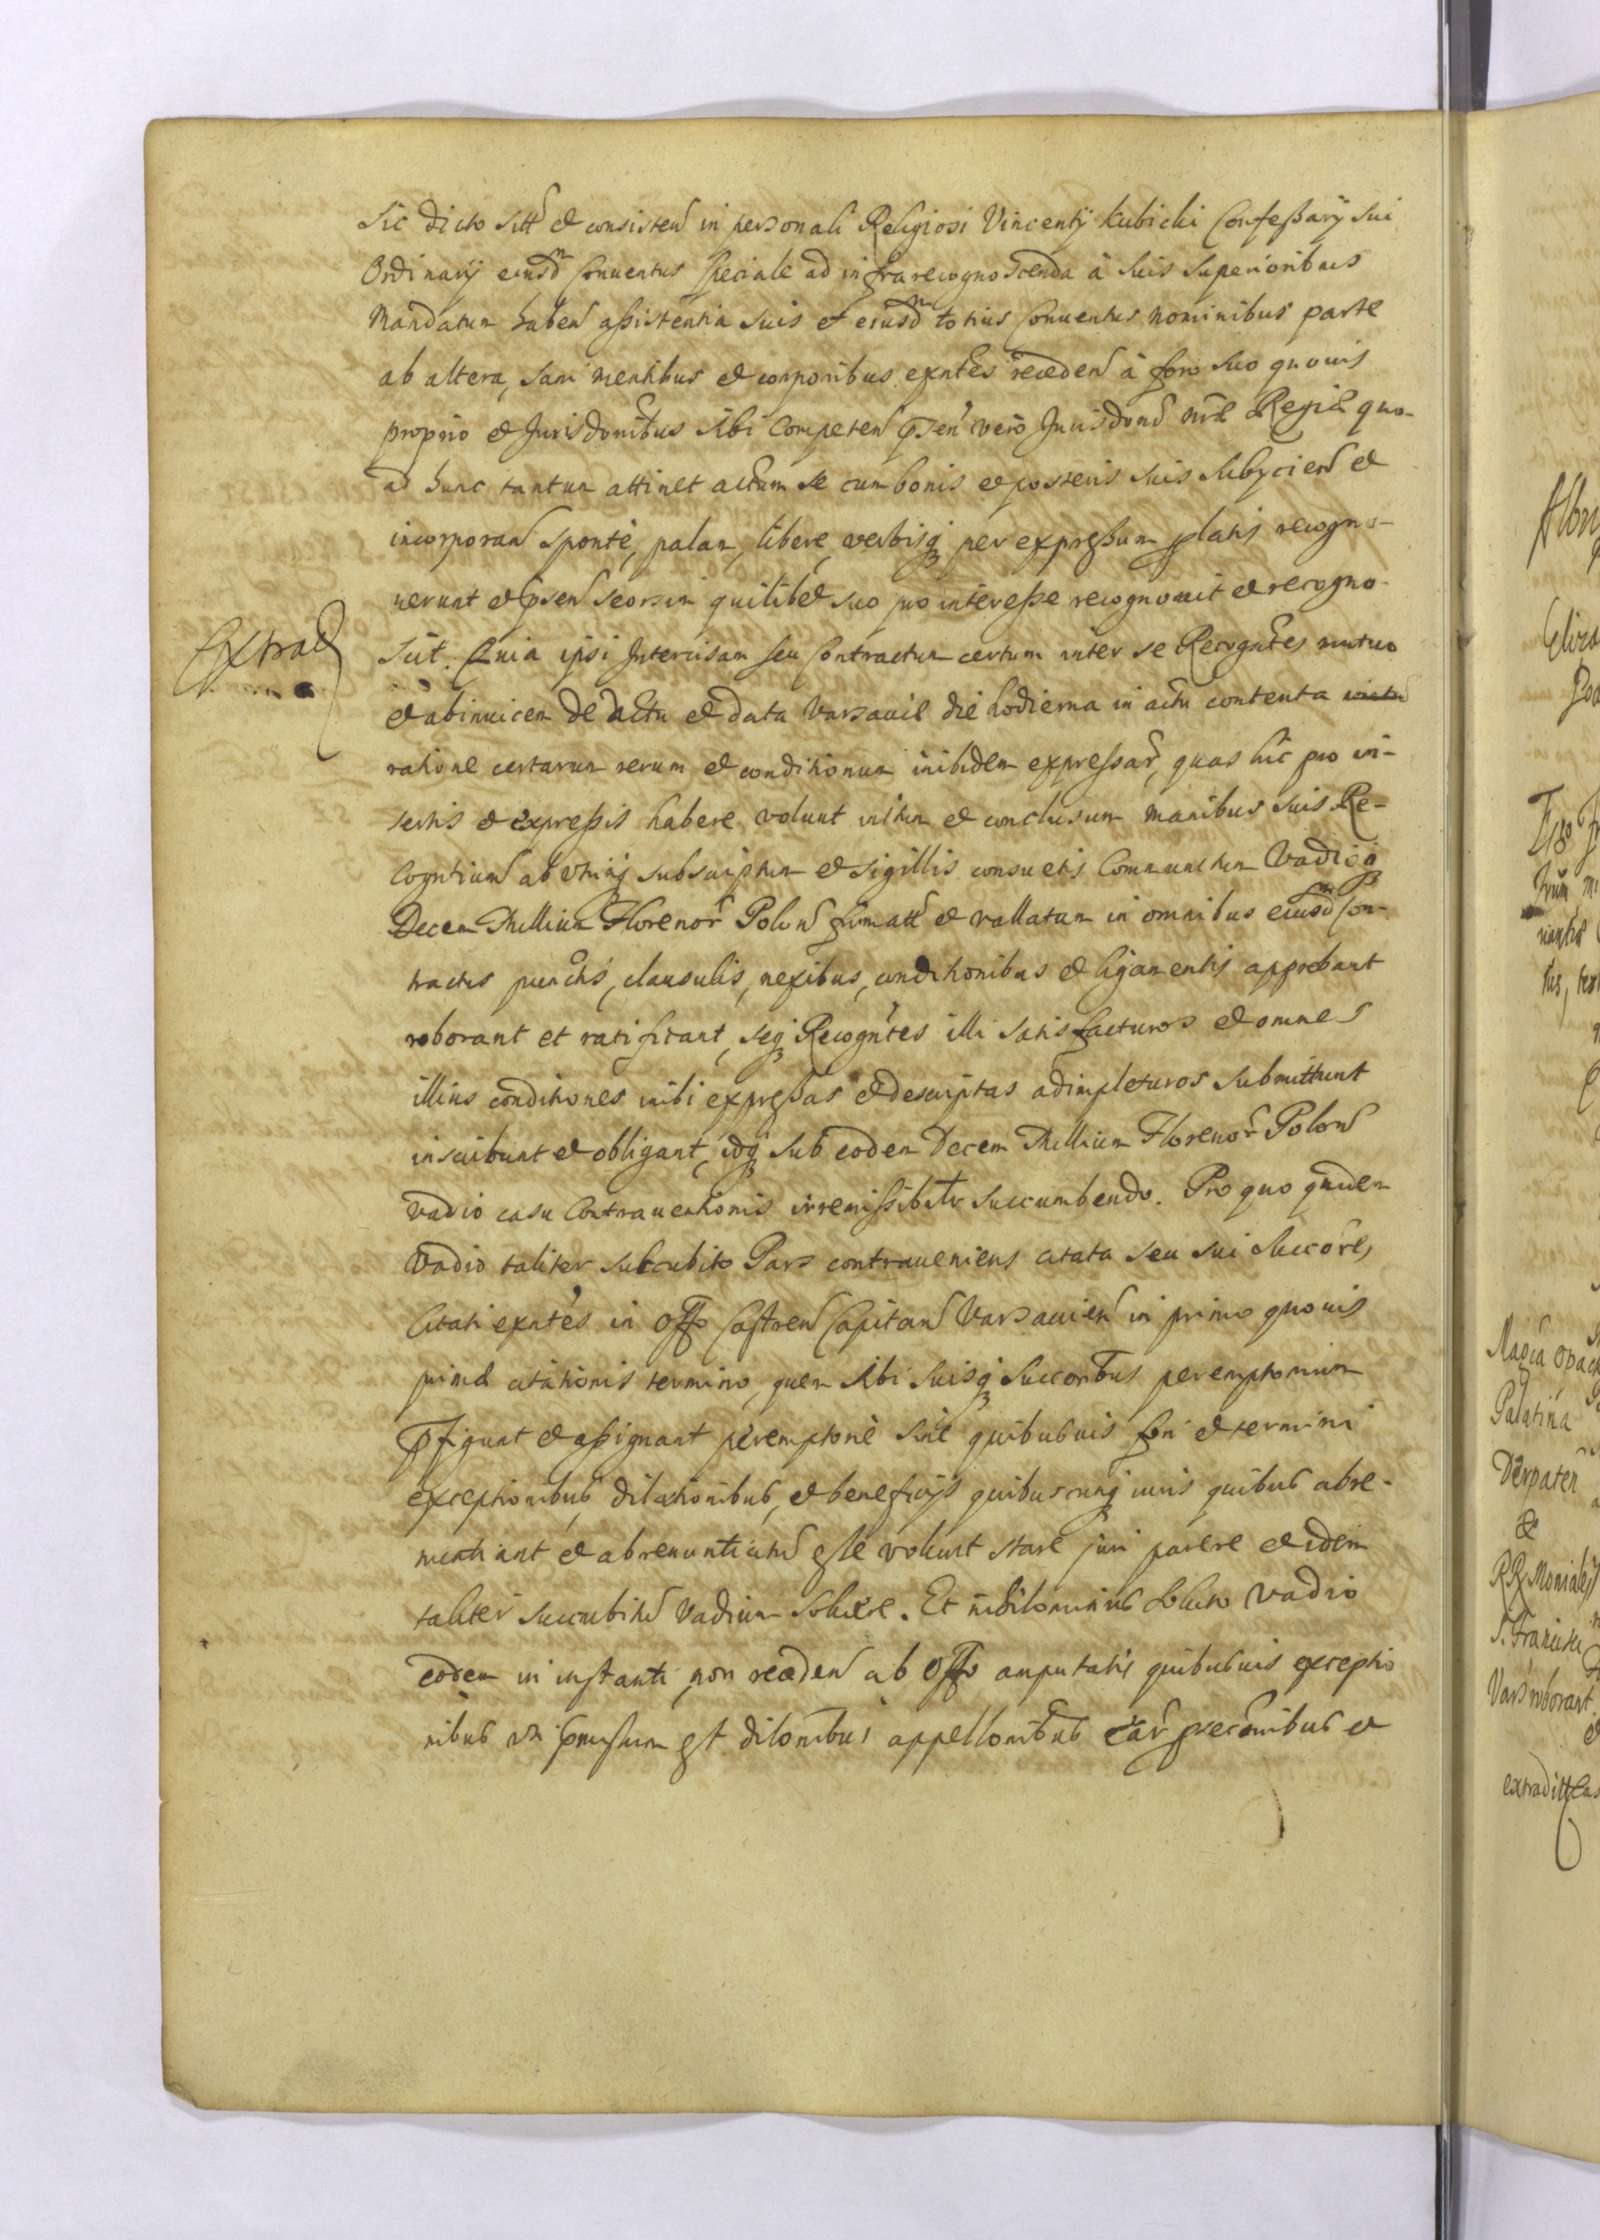 Sic dicto sitt et consisten in personali Religiosi Vincentÿ Kubicki Confeßarÿ sui
Ordinarÿ eiusdm Conuentus speciale ad infrarecognoscenda à suis superioribus
Mandatum haben aßistentia suis et eiusdm totius Conuentus nominibus parte
ab altera, sani mentibus et corporibus exntes receden à foro suo quouis
proprio et Jurisdonibus sibi Competen pnsen vero Jurisdone Regiæ quo-
ad hunc tantum attinet actum se cum bonis et posteris suis subÿcien et
incorporan sponte, palam, libere, verbisq per expreßum platis recogno-
uerunt et pnsen seorsim quilibet suo pro intereße recognouit et recogno-
scit. Quia ipsi Intercisam seu Contractum certum inter se Recogntes mutuo
et abinuicem de actu et data Varsauiæ die hodierna in actu contenta
ratione certarum rerum et conditionum inibidem expressar, quas hic pro in-
sertis et expreßis habere volunt initum et conclusum manibus suis Re-
Cogntium ab utrinq subscriptum et sigillis consuetis Communitum Vadioq
Decem Millium Florenor Polon firmatt et vallatum in omnibus eiusdm Con-
tractus punctis, clausulis, nexibus, conditionibus et ligamentis approbant
roborant et ratificant, seq Recogntes illi satisfacturos et omnes
illius conditiones inibi expreßas et descriptas adimpleturos submittunt
inscribunt et obligant, idq sub eodem Decem Millium Florenor Polon
vadio casu Contrauentionis irremißibiltr succumbendo. Pro quo quidem
Vadio taliter succubito Pars contraueniens citata seu sui succores
Citati exntes in Offo Castren Capitan Varsauien in primo quouis
primæ citationis termino, quem sibi suisq succoribus peremptorium
pfigunt et aßignant peremptorie sine quibusuis fori et termini
exceptionibus, dilationibus, et beneficÿs quibuscunq iuris quibus abre-
nuntiant et abrenuntiatu esse volunt stare juri parere et idem
taliter succubitu Vadium soluere. Et nihilominus soluto Vadio
eodem in instanti, non receden ab Offo amputatis quibusuis exceptio
nibus ut pmissum est dilonibus appellonibus
Extrad